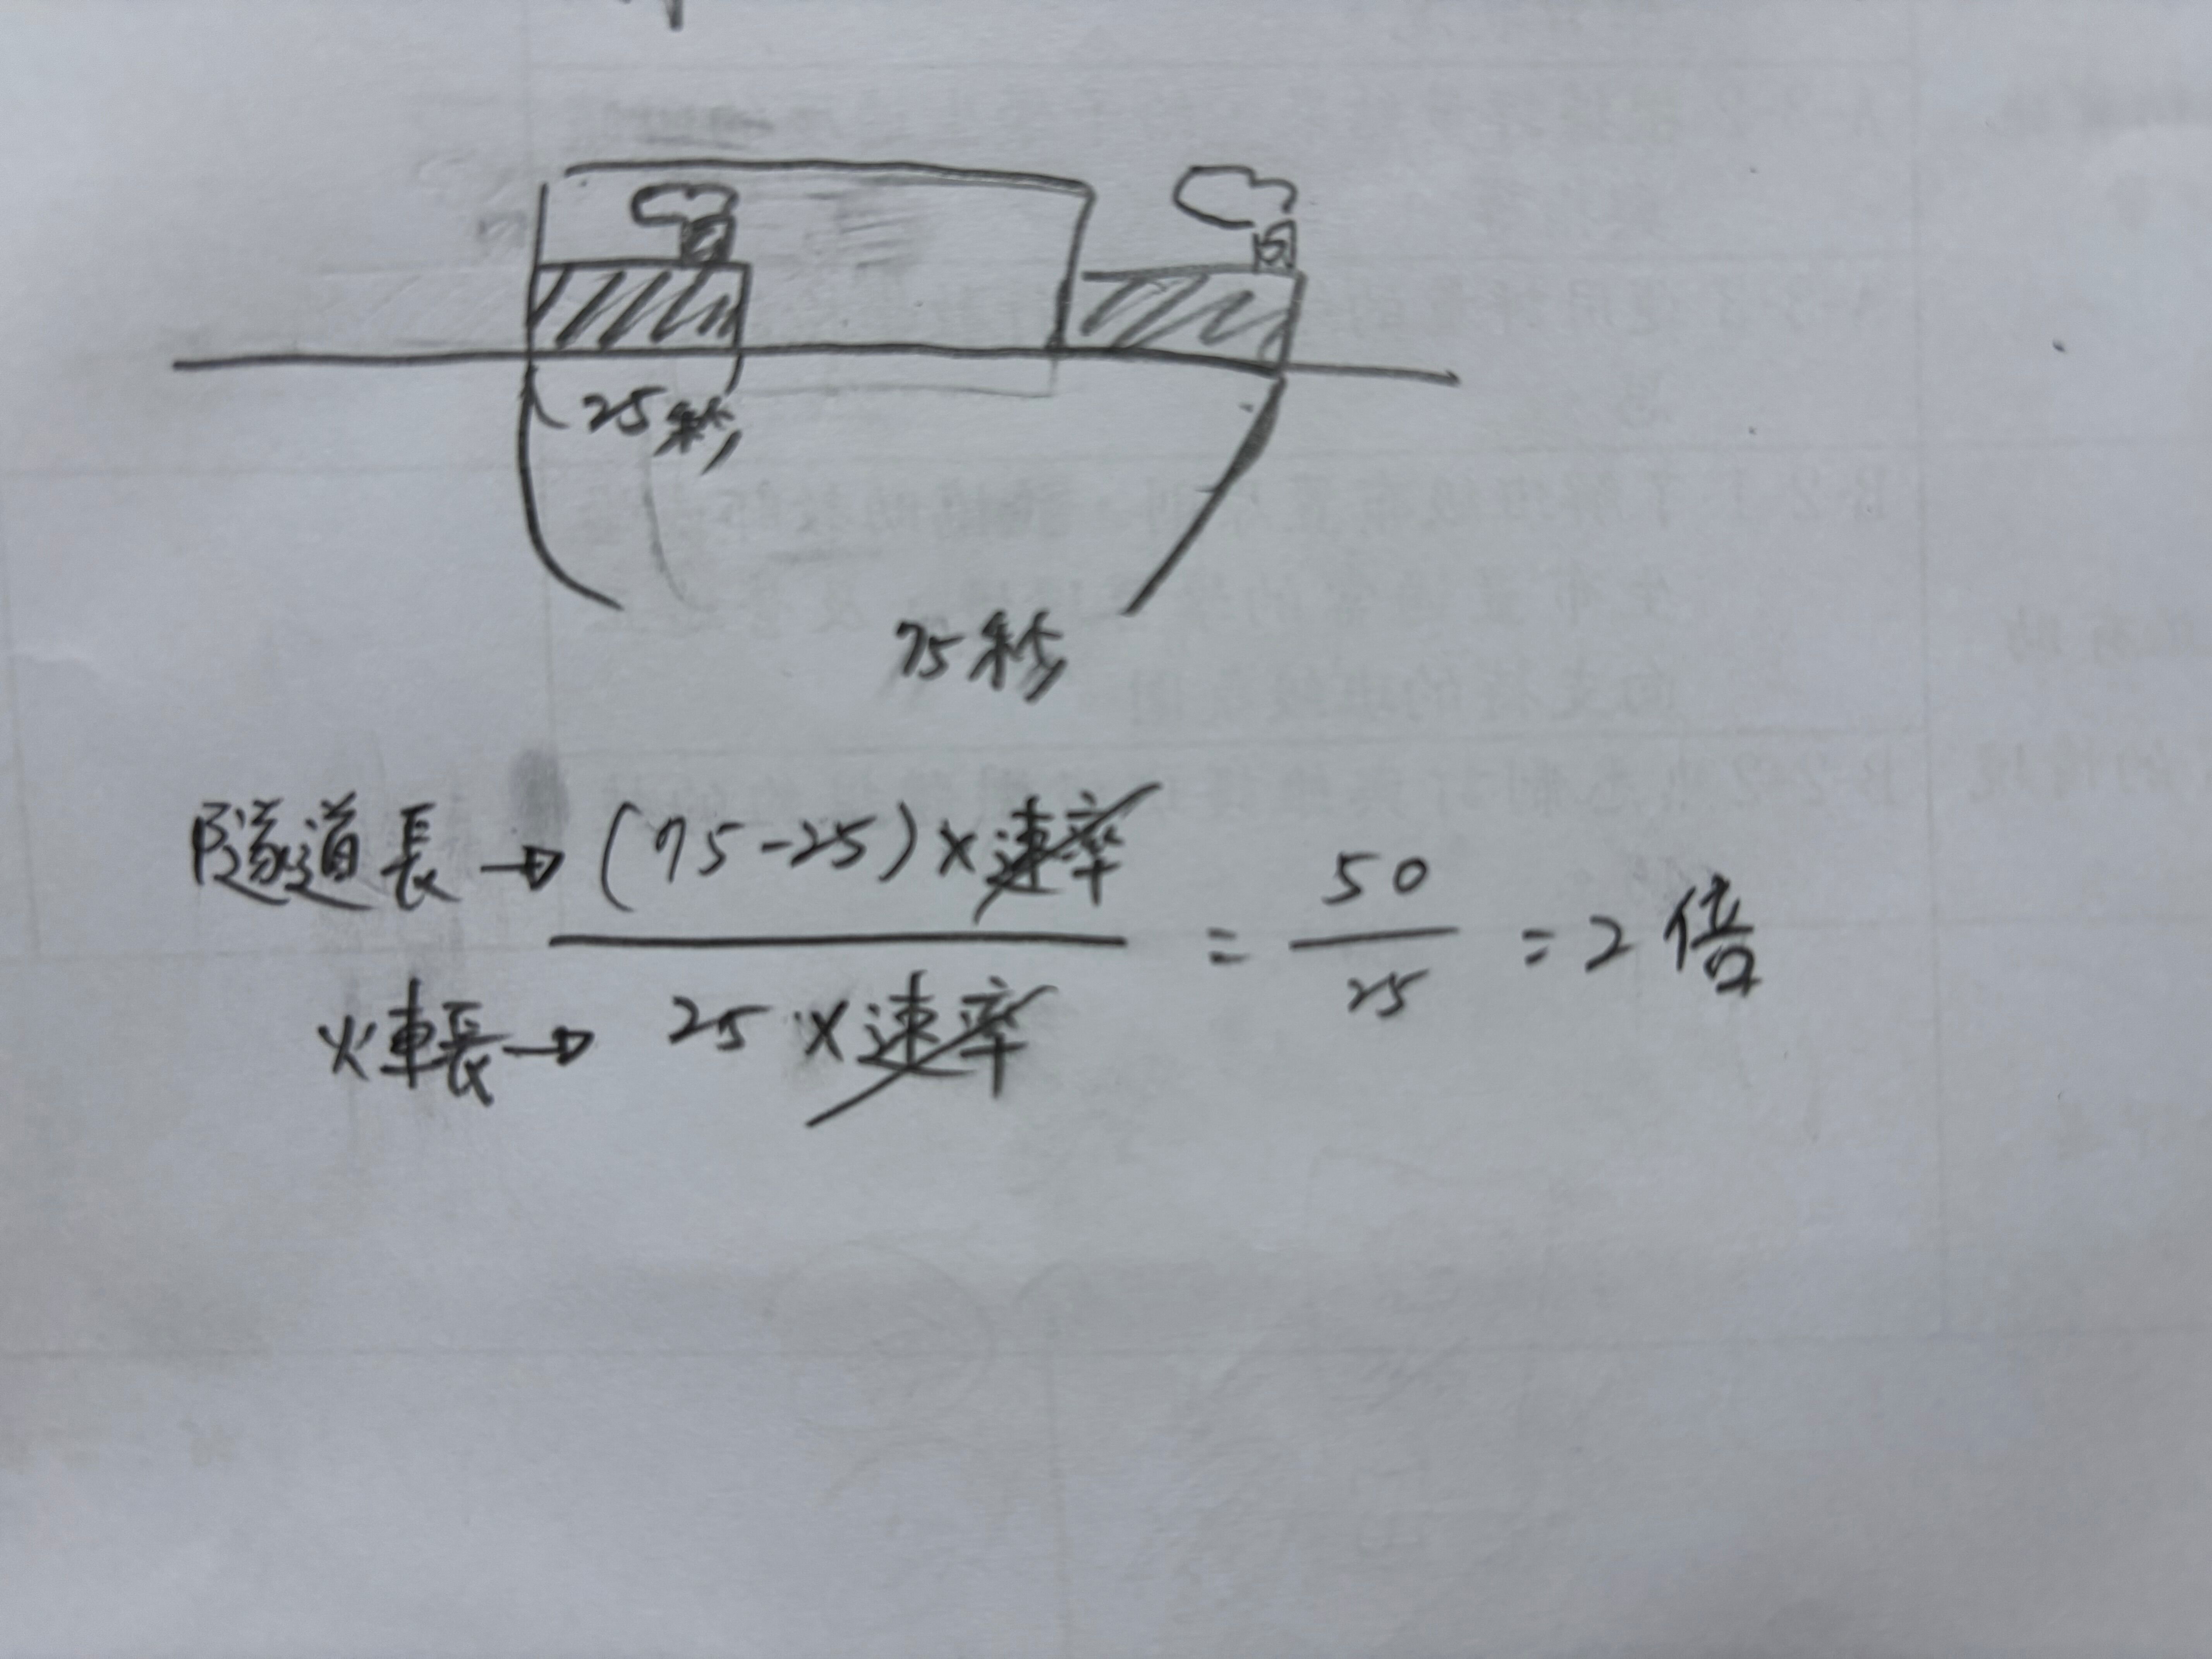 25秒
75秒
隧道長→ (75-25)×速率
火車長→ 25×速率
= 50/25 = 2倍